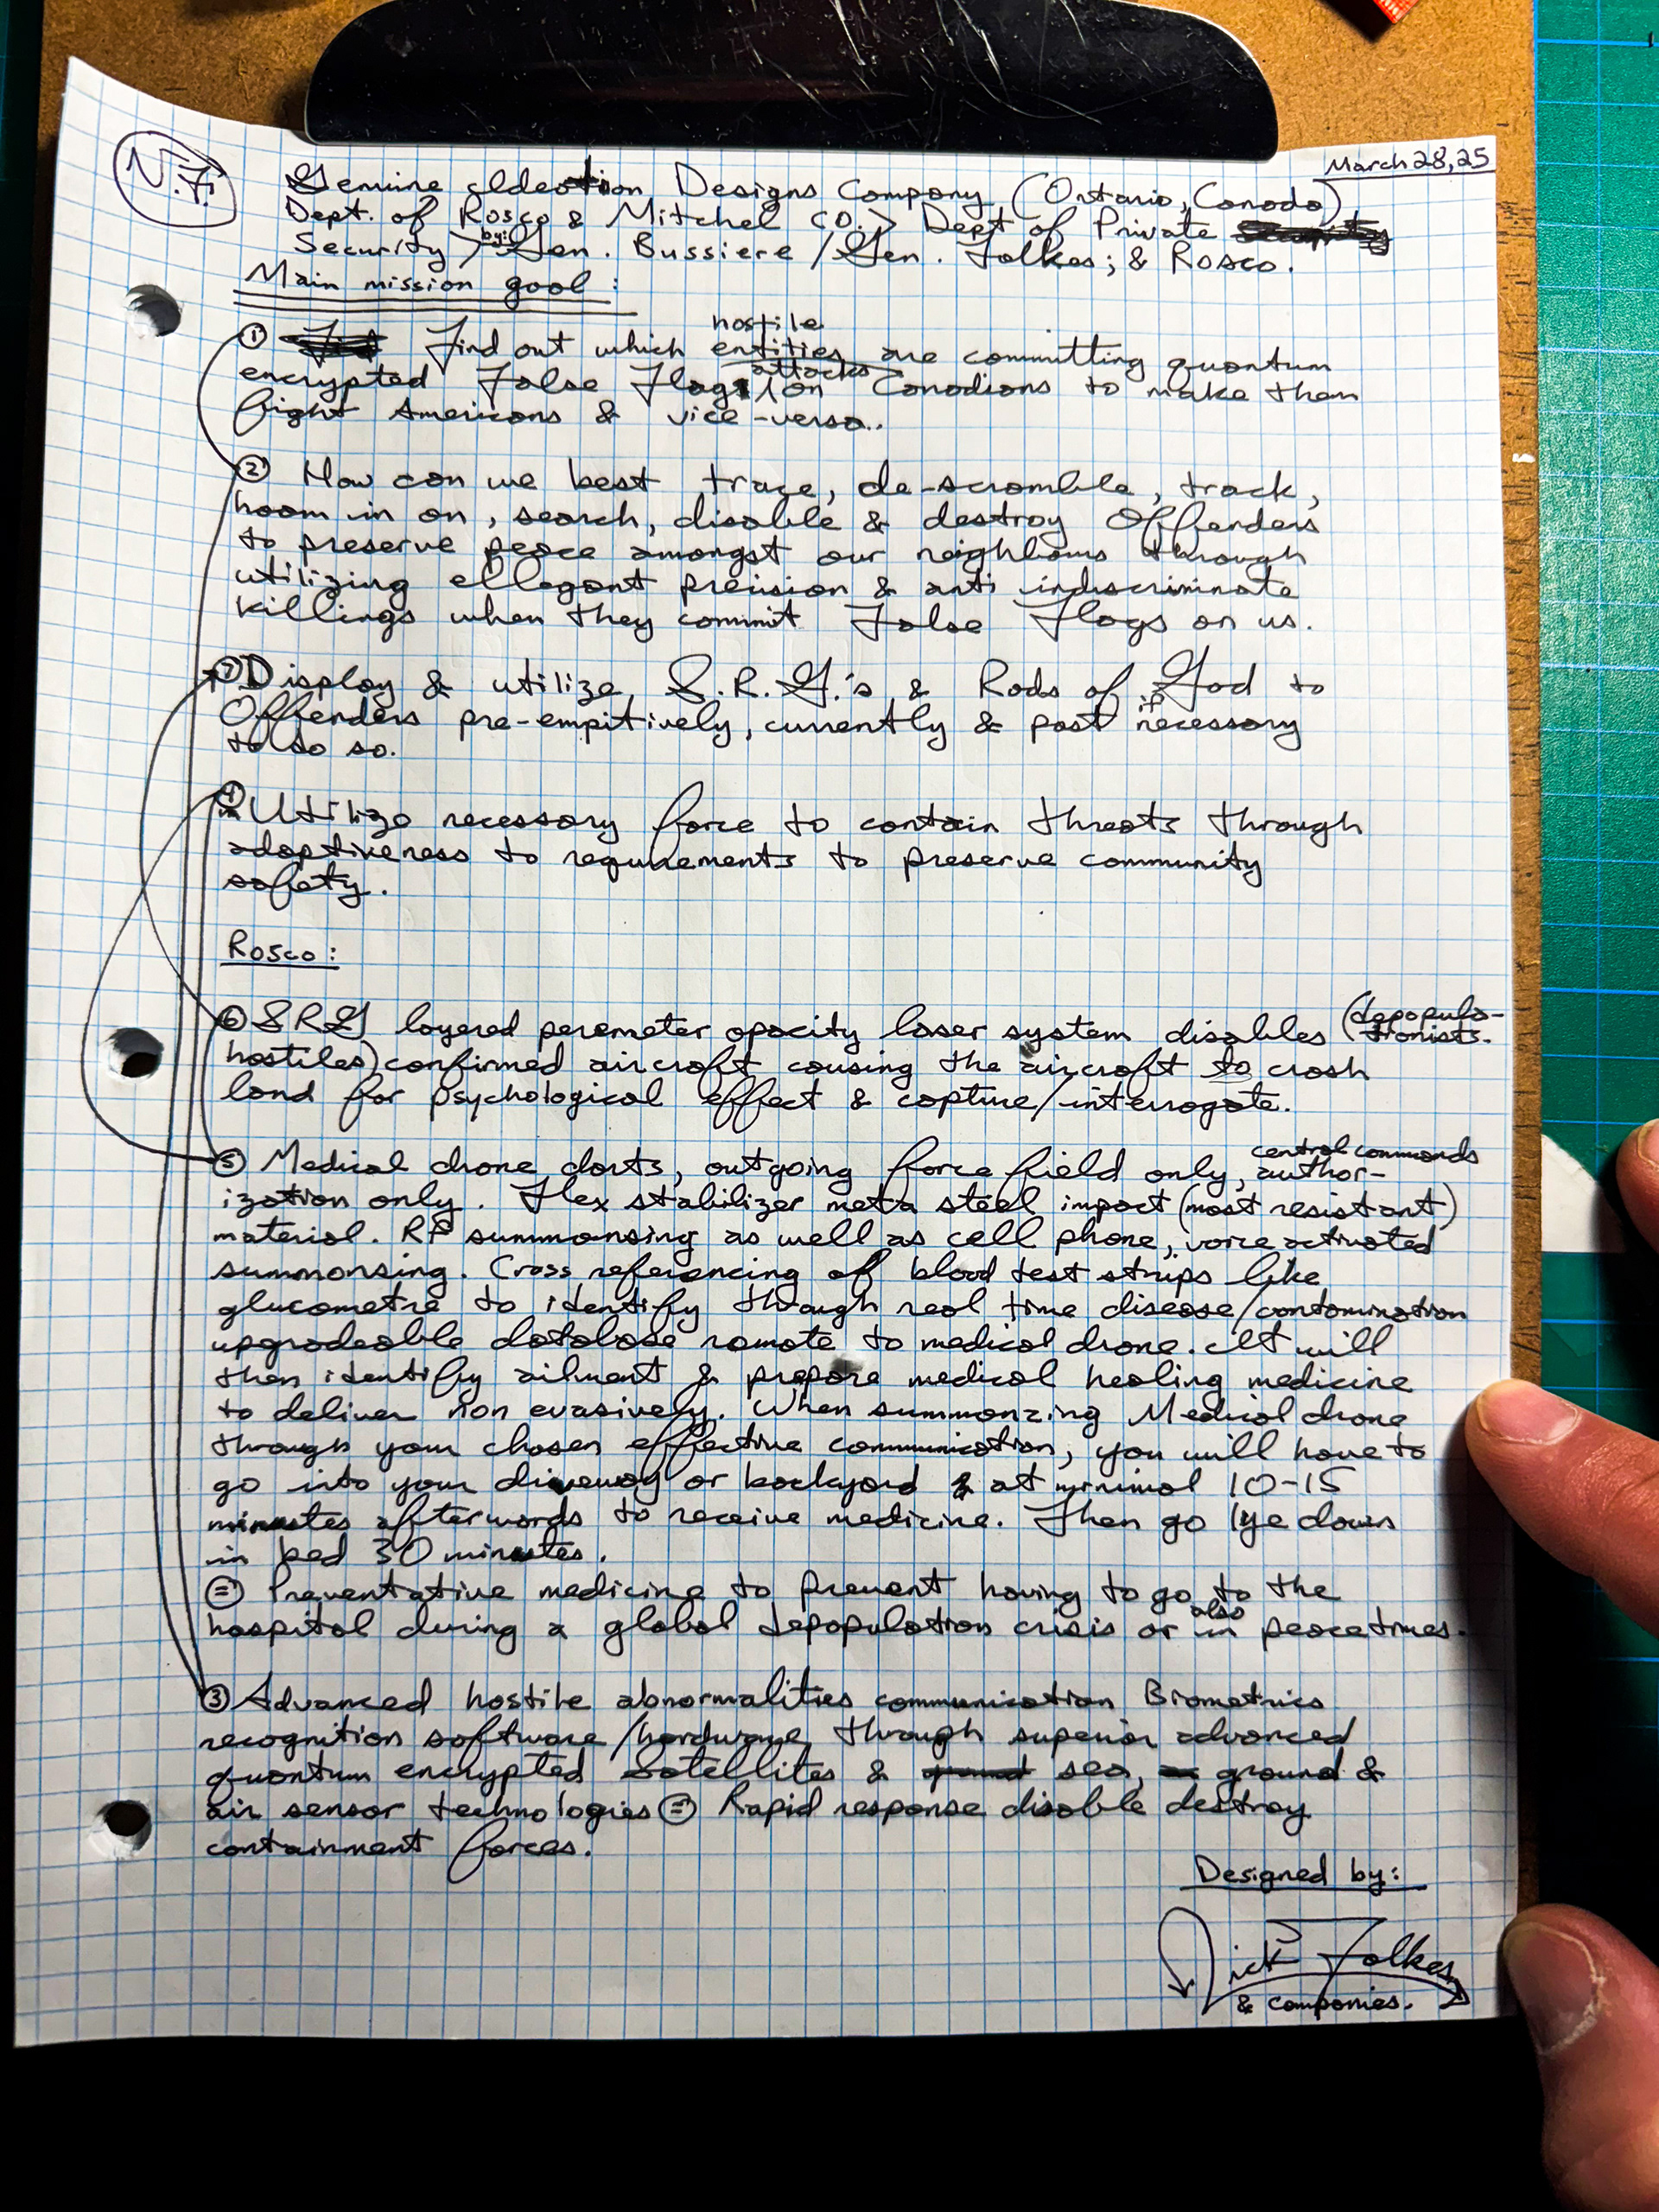 N.F.
March 28, 25
Genuine Ideation Designs Company (Ontario, Canada)
Dept. of Rosco & Mitchel CO. > Dept of Private
Security > by: Gen. Bussiere / Gen. Folkes; & Rosco.
Main mission goal:
① Find out which hostile entities are committing quantum
encrypted False Flag attacks on Canadians to make them
fight Americans & vice-versa..
② How can we best trace, de-scramble, track,
hoom in on, search, disable & destroy Offenders
to preserve peace amongst our neighbours through
utilizing ellegant precision & anti indiscriminate
killings when they commit False Flags on us.
⑦ Display & utilize S.R.G.'s & Rods of God to
Offenders pre-empitively, currently & post if necessary
to do so.
④ Utilize necessary force to contain threats through
adaptiveness to requirements to preserve community
safety.
Rosco:
⑥ SRG layered peremeter opacity laser system disables (depopula-
tionists-
hostiles) confirmed aircraft causing the aircraft to crash
land for psychological effect & capture/interrogate.
⑤ Medical drone darts, outgoing force field only, central commands author-
ization only. Flex stabilizer meta steel impact (most resistant)
material. RF summonsing as well as cell phone, voice activated
summonsing. Cross referencing of blood test strips like
glucometre to identify through real time disease/contamination
upgradeable database remote to medical drone. It will
then identify ailment & prepare medical healing medicine
to deliver non evasively. When summonzing Medical drone
through your chosen effective communication, you will have to
go into your driveway or backyard & at minimal 10-15
minutes afterwards to receive medicine. Then go lye down
in bed 30 minutes.
(=) Preventative medicine to prevent having to go to the
hospital during a global depopulation crisis or also in peacetimes.
③ Advanced hostile abnormalities communication Biometrics
recognition software/hardware through superior advanced
quantum encrypted Satellites & sea, ground &
air sensor technologies (=) Rapid response disable destroy
containment forces.
Designed by:
Nick Folkes
& companies.